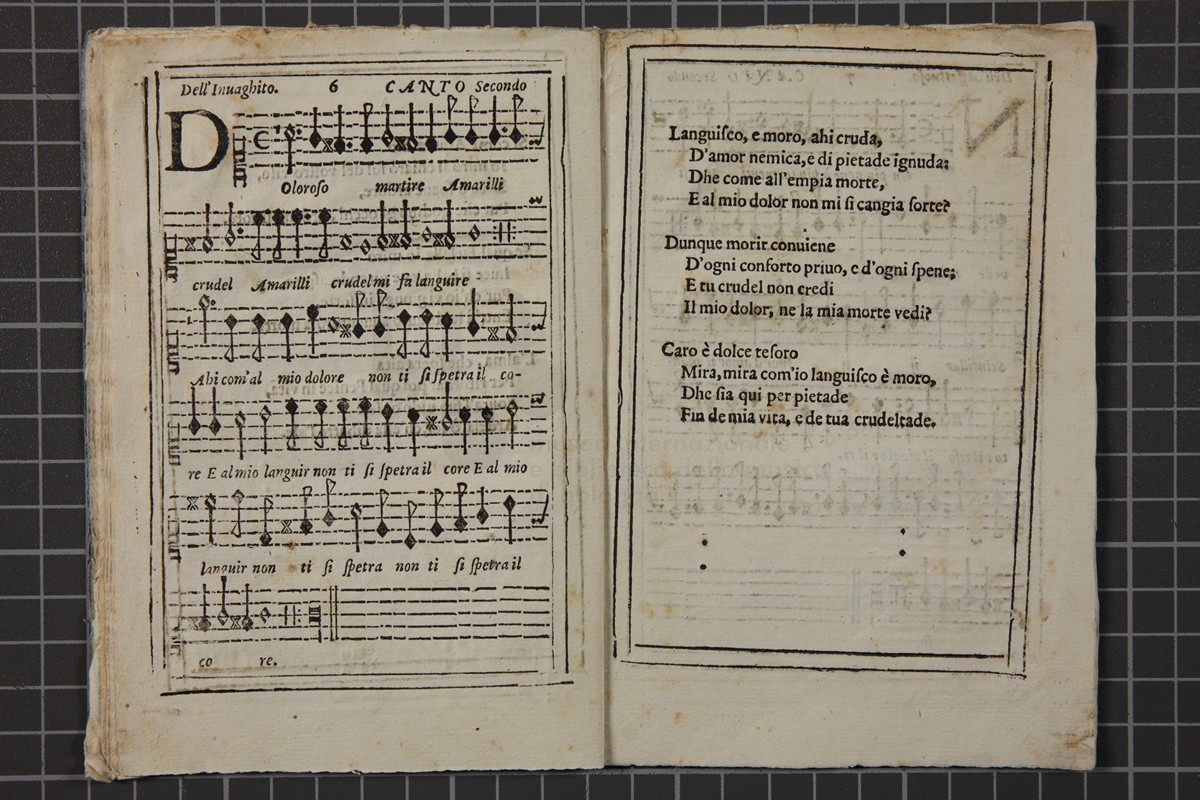 Dell'Inuaghito. 6 CANTO Secondo
DOloroso martire Amarilli
crudel Amarilli crudel mi fa languire :
Ahi com'al mio dolore non ti si ſpetra il co-
re E al mio languir non ti ſi ſpetra il core E al mio
languir non ti ſi ſpetra non ti ſi ſpetra il
co re.
Languiſco, e moro, ahi cruda,
D'amor nemica, e di pietade ignuda;
Dhe come all'empia morte,
E al mio dolor non mi ſi cangia ſorte?
Dunque morir conuiene
D'ogni conforto priuo, e d'ogni ſpene;
E tu crudel non credi
Il mio dolor, ne la mia morte vedi?
Caro è dolce teſoro
Mira, mira com'io languiſco è moro,
Dhe ſia qui per pietade
Fin de mia vita, e de tua crudeltade.